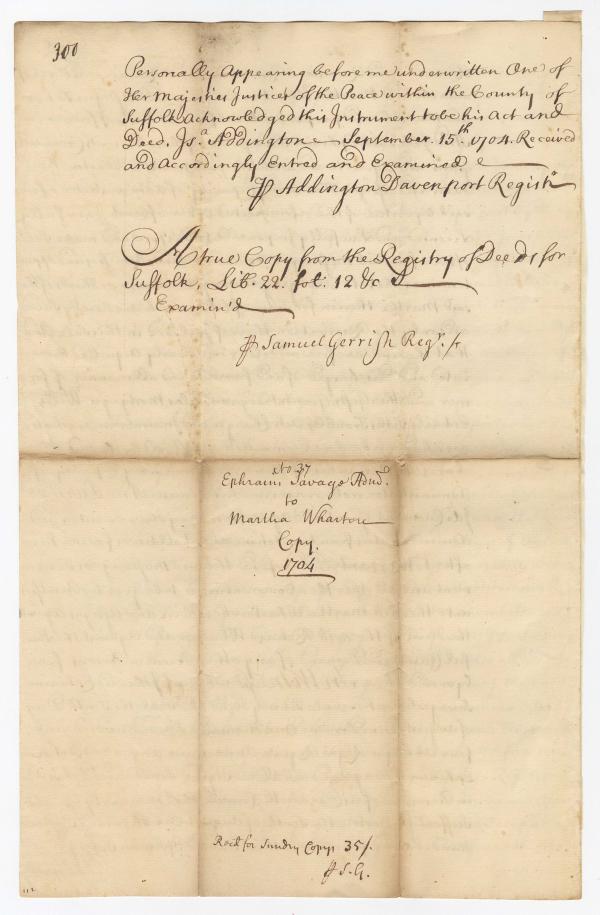 300
Personally Appearing before me underwritten One of
Her Majesties Justices of the Peace within the County of
Suffolk Acknowledged this Instrument to be his Act and
Deed, Js.ª Addington September. 15.th 1704. Received
and accordingly Entred and Examined
⅌ Addington Davenport Registr
A true Copy from the Registry of Deeds for
Suffolk, Lib. 22. fol: 12 &c
Examin'd
⅌ Samuel Gerrish Regr.
No 37
Ephraim Savage Admr.
to
Martha Wharton
Copy.
1704
Recd for Sundry Copys 35/.
⅌ S. G.
112